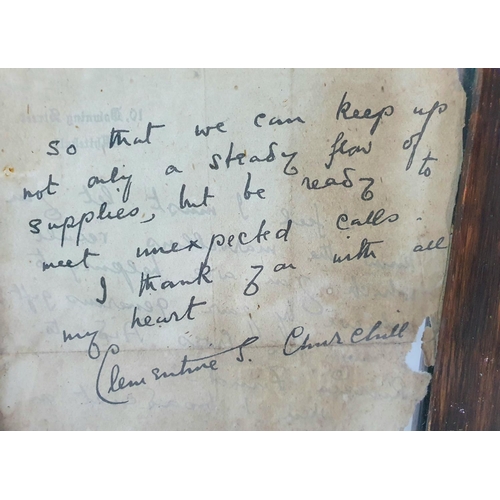 so that we can keep up
not only a steady flow of
supplies, but be ready to
meet unexpected calls.
I thank you with all
my heart
Clementine S. Churchill